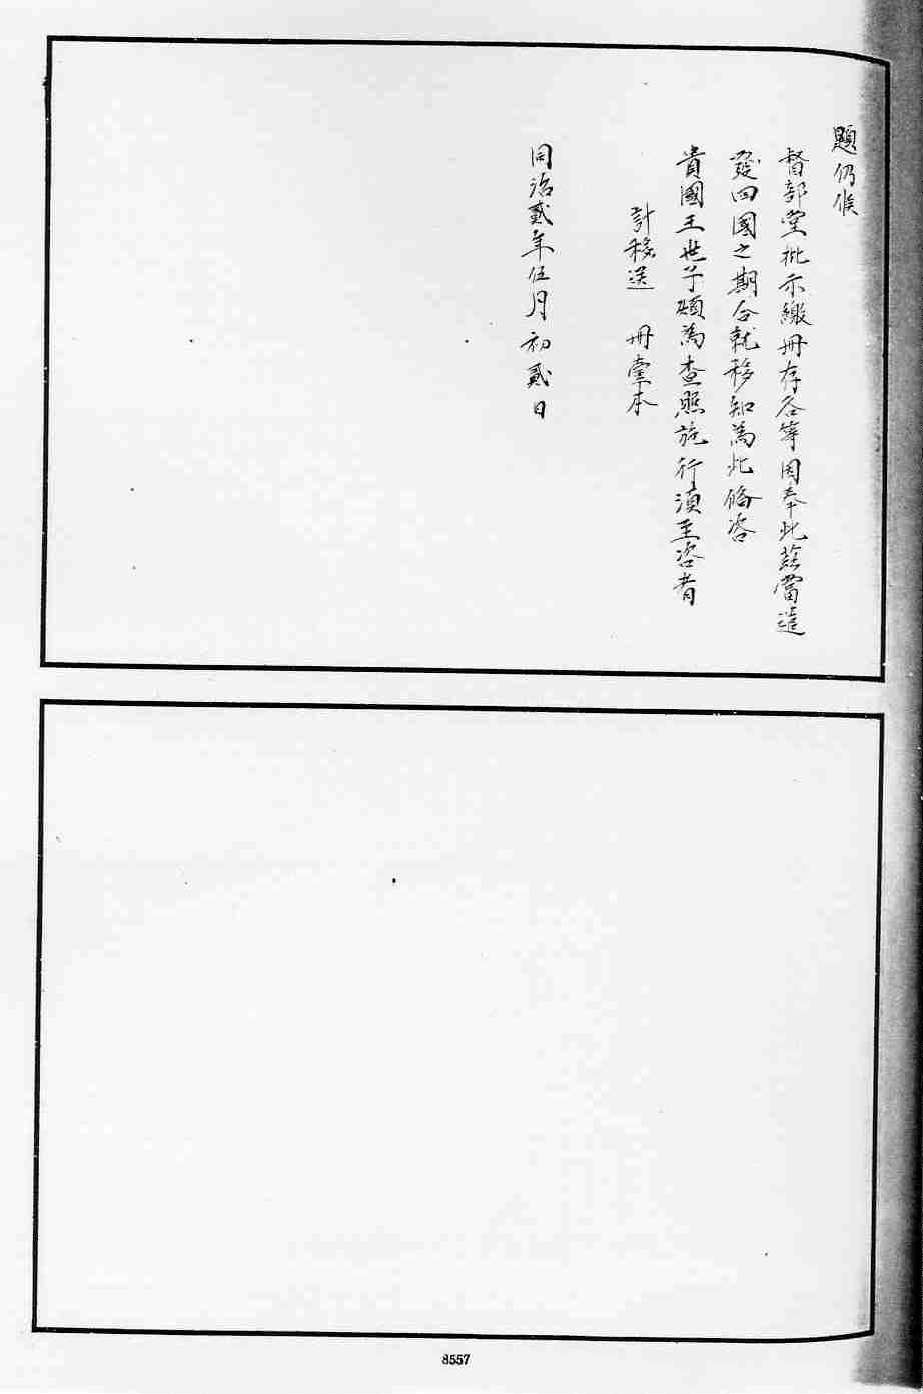 題仍候
督部堂批示繳冊存各等因奉此茲當遣
發回國之期合就移知為此備咨
貴國王世子煩為查照施行須至咨者
計移送 冊壹本
同治貳年伍月初貳日
8557